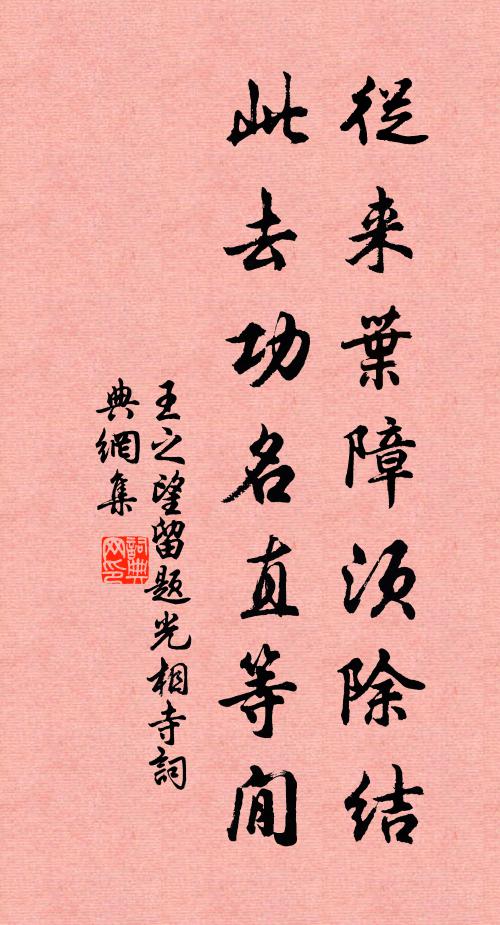 從来業障須除結
此去功名直等閒
王之望留題光相寺詞
典網集
詞典
网印